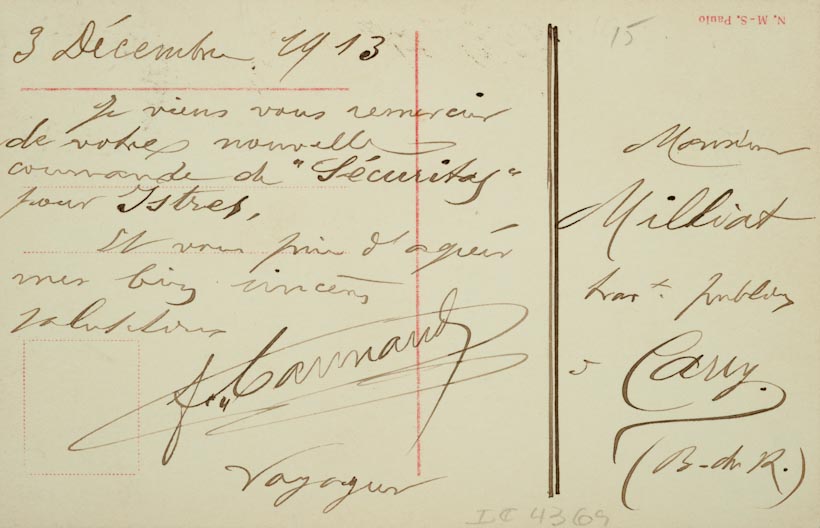 3 Décembre 1913
Je viens vous remercier
de votre nouvelle
commande de "Sécuritas"
pour Istres,
Et vous prie d'agréer
mes bien sincères
salutations
Voyageur
Monsieur
Milliat
trav.t publics
à Carry
(B-du R.)
N. M-S. Paulo
15
IC 4369